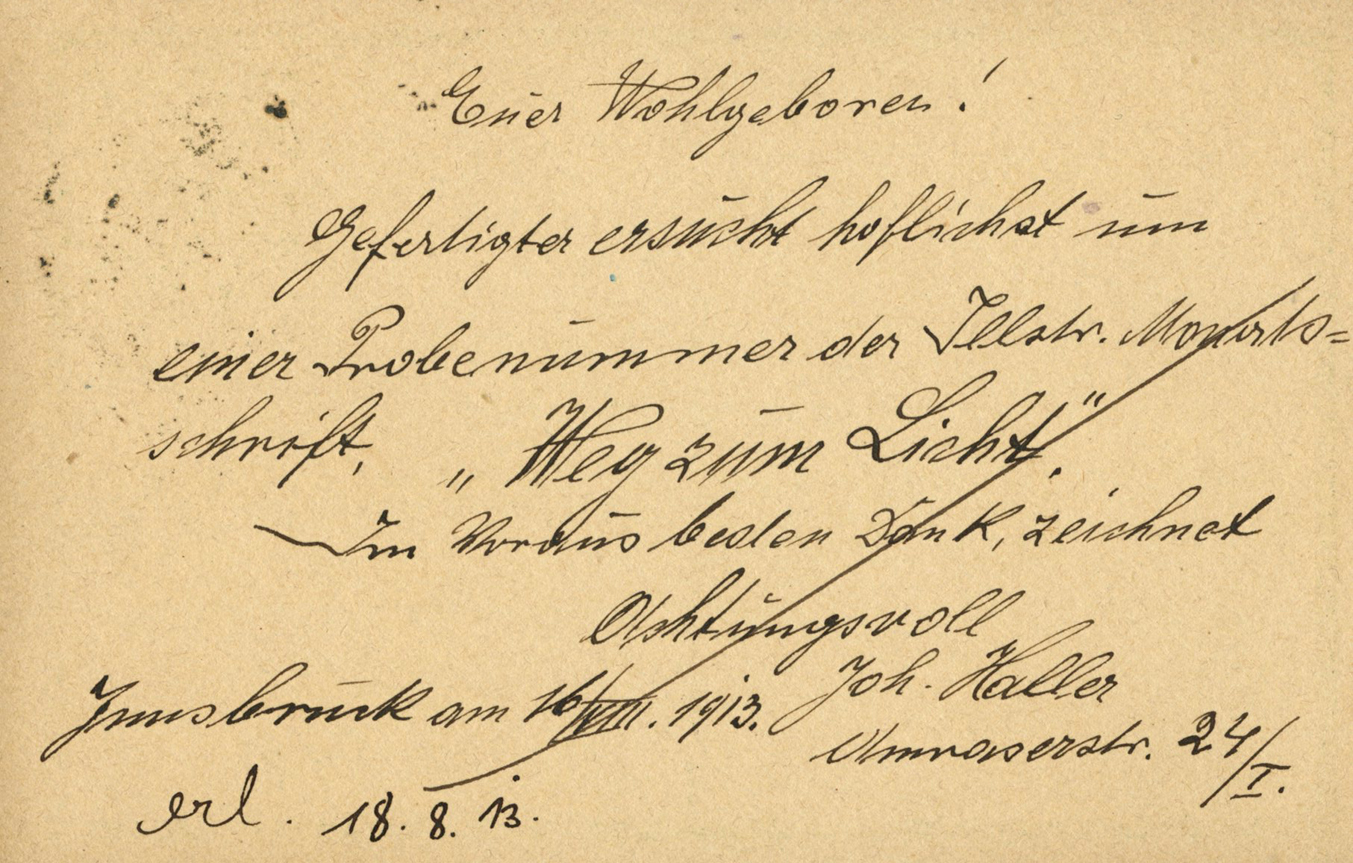 Euer Wohlgeboren!
Gefertigter ersucht höflichst um
einer Probenummer der Illstr. Monats=
schrift, „Weg zum Licht."
Im Voraus besten Dank, zeichnet
Achtungsvoll
Innsbruck am 16/VIII. 1913. Joh. Haller
Amraserstr. 24/I.
erl. 18. 8. 13.